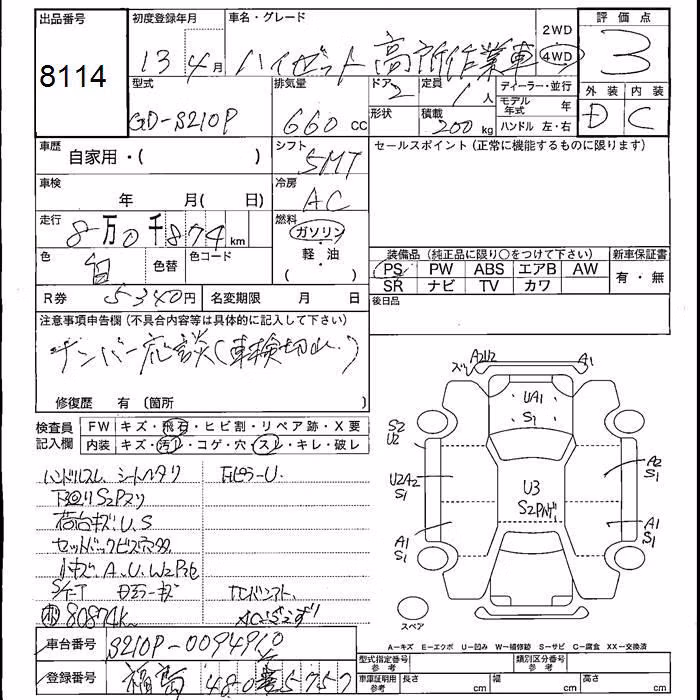 出品番号 初度登録年月 車名・グレード 2WD 評価点
8114 13 4月 ハイゼット 高所作業車 4WD 3
型式 排気量 ドア 定員 ディーラー・並行 外装 内装
2 1人 モデル年式 年
GD-S210P 660cc 形状 積載 200kg ハンドル 左・右 D C
車歴 自家用・( ) シフト 5MT セールスポイント(正常に機能するものに限ります)
車検 年 月( 日) 冷房 AC
走行 8万0千874km 燃料 ガソリン・軽・油 ( )
色 白 色替 色コード 装備品(純正品に限り○をつけて下さい) 新車保証書
PS PW ABS エアB AW 有・無
SR ナビ TV カワ
R券 5340円 名変期限 月 日 後日品
注意事項申告欄(不具合内容等は具体的に記入して下さい)
ナンバー応談(車検切れ)
修復歴 有 (箇所 )
検査員記入欄 FW キズ・飛石・ヒビ割・リペア跡・X要
内装 キズ・汚レ・コゲ・穴・スレ・キレ・破レ
ハンドルスレ シートヘタリ FピラーU.
下廻りS2Pスリ
荷台キズ.U.S
セットバックビス穴多
小キズ.A.U.W2P他
80874k
ACガスえず
A2U2 A1
UA1
S1
S2
U2
U2A2
S1
A2
S1
U3
A1
S1
A1
S1
スペア
A-キズ E-エクボ U-凹み W-補修跡 S-サビ C-腐食 XX-交換済
車台番号 S210P-0094910
型式指定番号 参考 類別区分番号 参考
登録番号 480 5757
車庫証明用 参考 長さ cm 幅 cm 高さ cm